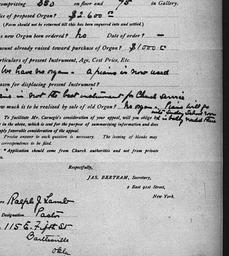 omprising 350 on floor and 75 in Gallery.
ice of proposed Organ? $2.600
(Form should not be returned till this has been entered into and settled.)
new Organ been ordered? no Date of order? -
mount already raised toward purchase of Organ? $1000
articulars of present Instrument, Age, Cost Price, Etc.
We have no organ. A piano is now used
eason for displacing present Instrument?
is not the best instrument for Church service
ow much is to be realised by sale of old Organ? no organ. Piano will go
into Sunday School room
To facilitate Mr. Carnegie's consideration of your appeal, will you oblige
in the above, which is sent for the purpose of summarizing information and does
imply favorable consideration of the appeal.
Precise answer to each question is necessary. The leaving of blanks may
correspondence to be filed.
*Application should come from Church authorities and not from private
Respectfully,
JAS. BERTRAM, Secretary,
2 East 91st Street,
New York.
Ralph J. Lamb
Designation, Pastor
115 E. Fifth St
Bartlesville
Okla